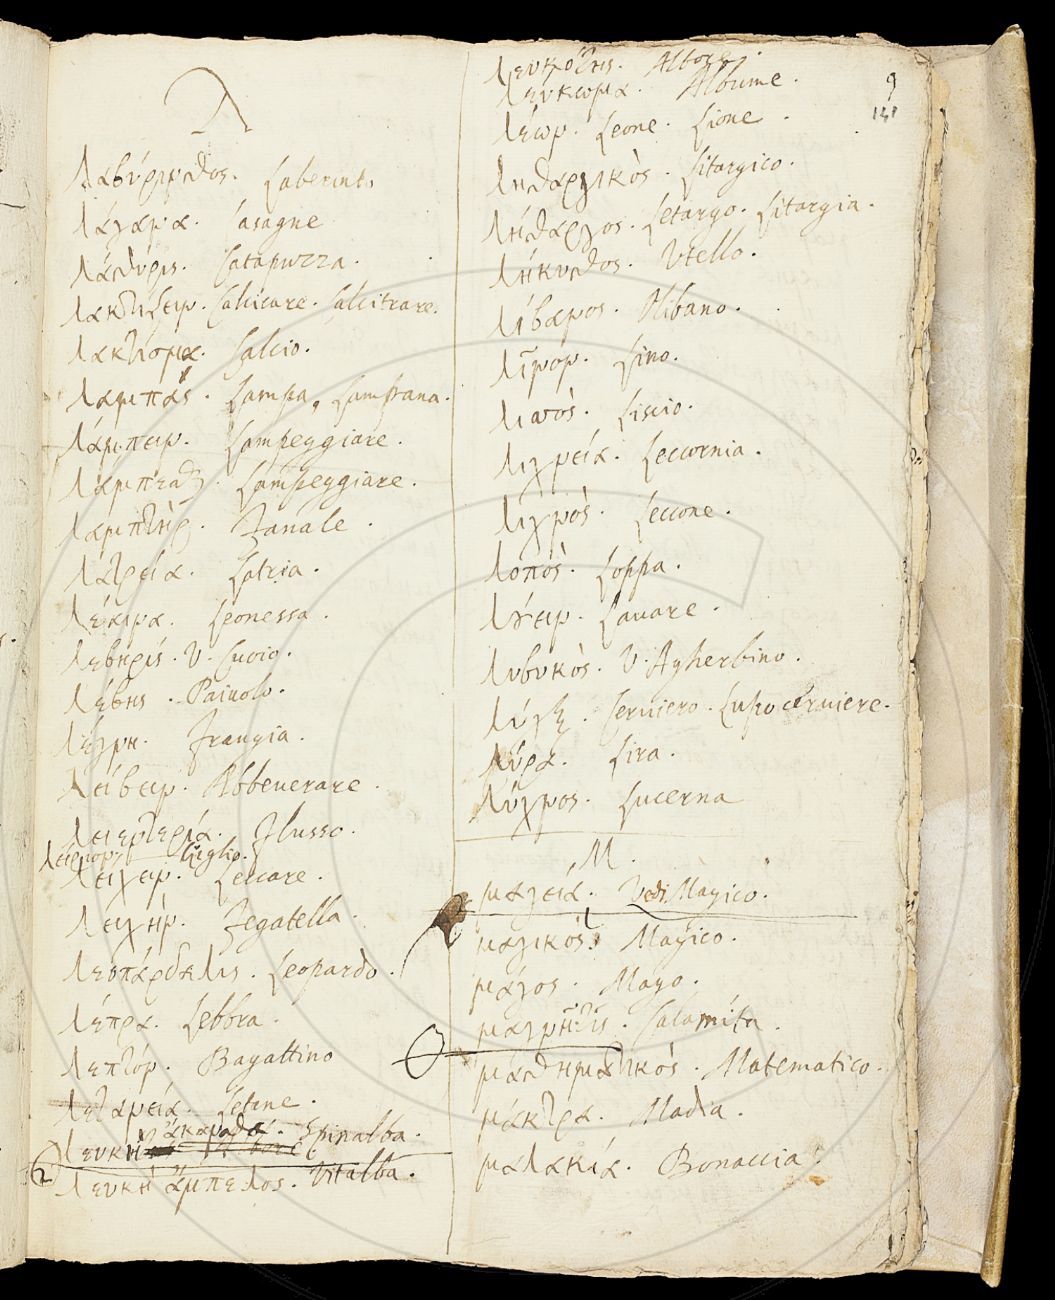 Λ
λαβύρινθος. Laberinto
λάγανα. Lasagne
λάθυρις. Catapuzza.
λακτίζειν. Calcicare. Calcitrare.
λακτισμα. Calcio.
λαμπὰς. Lampa, Lampana.
λάμπειν. Lampeggiare.
Lampeggiare.
λαμπτὴρ. Fanale.
λάτρεία. Latria.
λέαινα. Leonessa.
λεβηρίς. V. Cuoio.
λέβης. Paiuolo.
λέγνη. Frangia.
λείβειν. Abbeuerare.
λειεντερία. Flusso.
λείριον. Giglio.
λείχειν. Leccare.
λειχὴν. Fegatella.
λεοπάρδαλις. Leopardo.
λέπρα. Lebbra.
λεπτόν. Bagattino
λιτανεία. Letane.
λευκὴ ἄκανθα. Spinalba.
λευκὴ ἄμπελος. Vitalba.
λευκότης. Albore.
λευκωμα. Albume.
9
141
λέων. Leone. Lione.
ληθαργικὸς. Litargico.
λήθαργος. Letargo. Litargia.
λήκυθος. Utello.
λίβανος. Olibano.
λῖνον. Lino.
λισσὸς. Liscio.
λιχνεία. Leccornia.
λίχνος. Leccone.
λοπὸς. Loppa.
λούειν. Lauare.
λυβυκὸς. V. Agherbino.
λύγξ. Ceruiero. Lupo ceruiere.
λύρα. Lira.
λύχνος. Lucerna
M.
μαγεία. Vedi Magico.
μαγικός. Magico.
μάγος. Mago.
μαγνῆτις. Calamita.
μαθηματικὸς. Matematico.
μάκτρα. Madia.
μαλακία. Bonaccia.